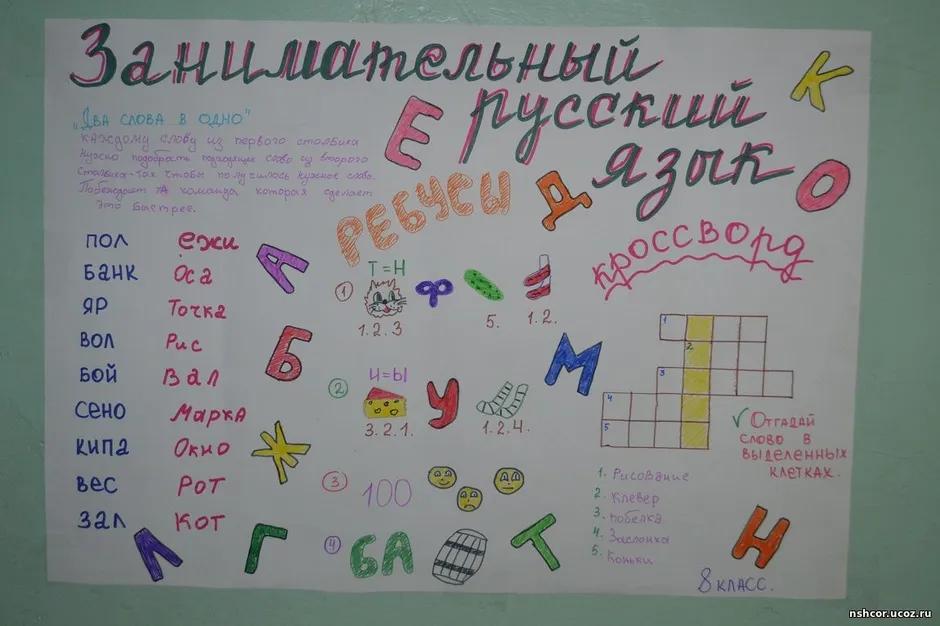 Занимательный
русский
язык
К
Е
О
Д
"Два слова в одно"
Каждому слову из первого столбика
нужно подобрать подходящее слово из второго
столбика так чтобы получилось нужное слово.
Побеждает та команда которая сделает
это быстрее.
пол ежи
банк Оса
яр Точка
вол Рис
бой Вал
сено Марка
кипа Окно
вес Рот
зал Кот
А
Б
Ж
Л
Г
РЕБУСЫ
Т=Н
1 Ф
1.2.3 5. 1.2.
И=Ы
2 У
3.2.1. 1.2.4.
3 100
4 БА
Т
М
кроссворд
1
2
3
4
5
√ Отгадай
слово в
выделенных
клетках.
1. Рисование
2. Клевер
3. побелка
4. Заслонка
5. Коньки
Н
8 класс.
nshcor.ucoz.ru